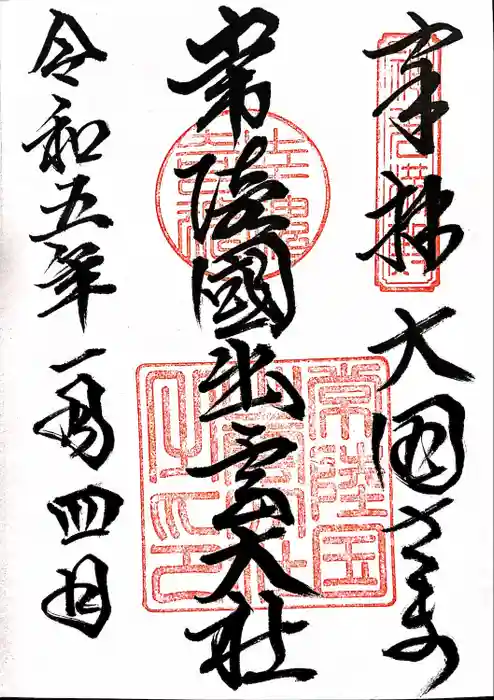 奉拝 大國さま
常陸國出雲大社
令和五年一月四日
常陸国
出雲大社